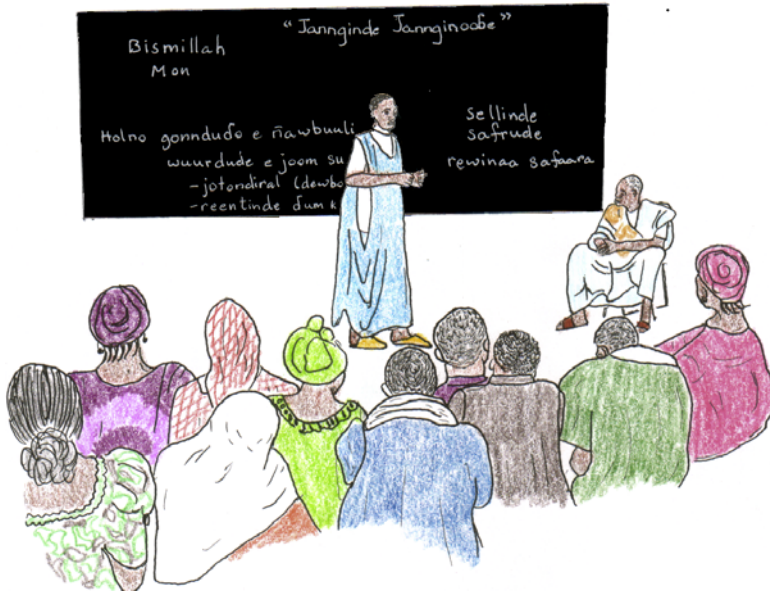 "Jannginde Jannginooɓe"
Bismillah
Mon
Holno gonnduɗo e ñawbuuli
wuurdude e joom su
-jotondiral (dewbo
-reentinde ɗum k
Sellinde
safrude
rewinaa safaara